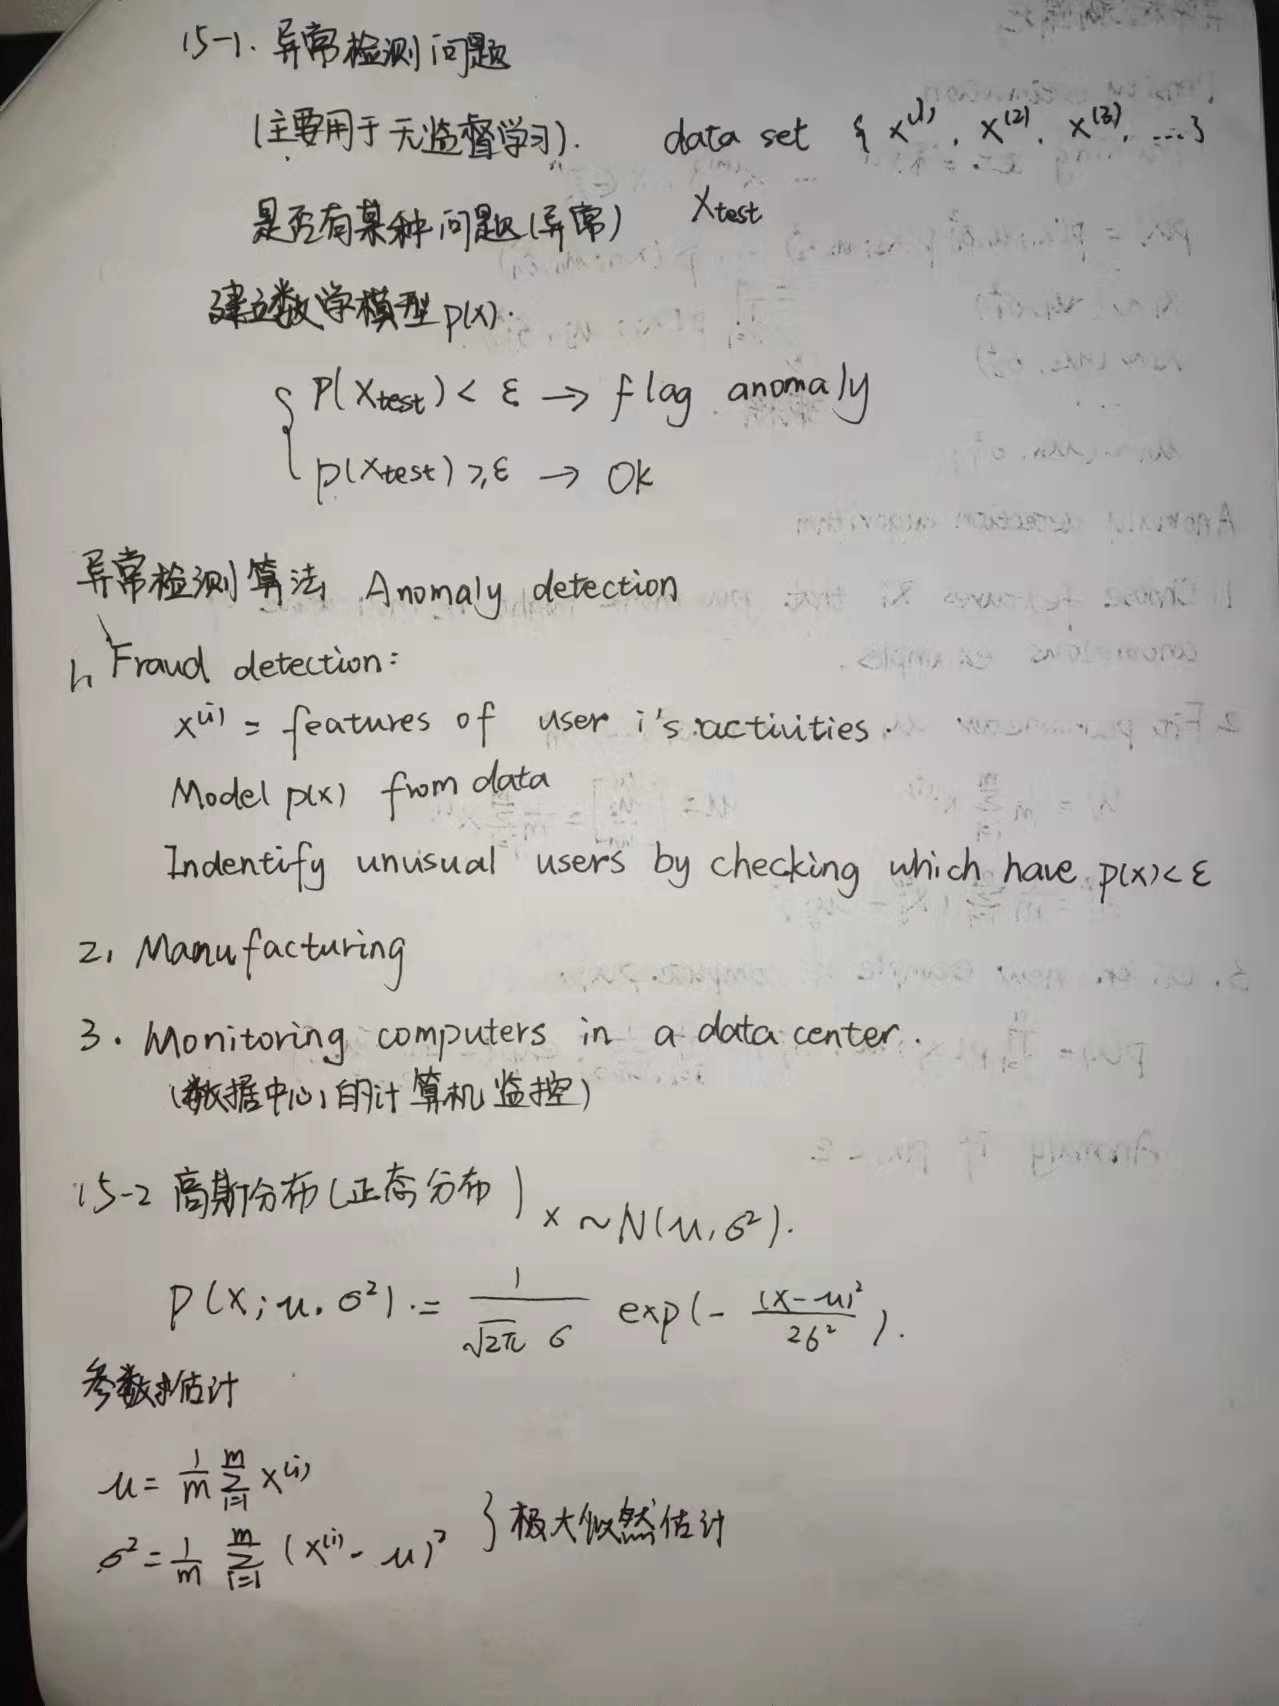 15-1. 异常检测问题
(主要用于无监督学习). data set { x⁽¹⁾, x⁽²⁾, x⁽³⁾, ...}
是否有某种问题(异常) Xtest
建立数学模型p(x).
{ P(Xtest) < ε → flag anomaly
p(Xtest) ≥ ε → Ok
异常检测算法 Anomaly detection
1. Fraud detection:
x⁽ⁱ⁾ = features of user i's activities.
Model p(x) from data
Indentify unusual users by checking which have p(x)<ε
2. Manufacturing
3. Monitoring computers in a data center.
(数据中心的计算机监控)
15-2 高斯分布(正态分布) x ~ N(μ, σ²).
P(x; μ, σ²) = 1/(√2π σ) exp(- (x-μ)²/2σ²).
参数估计
μ = 1/m Σᵢ₌₁ᵐ x⁽ⁱ⁾
σ² = 1/m Σᵢ₌₁ᵐ (x⁽ⁱ⁾ - μ)² } 极大似然估计